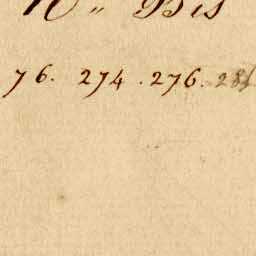 N" Bis
76. 274. 276.